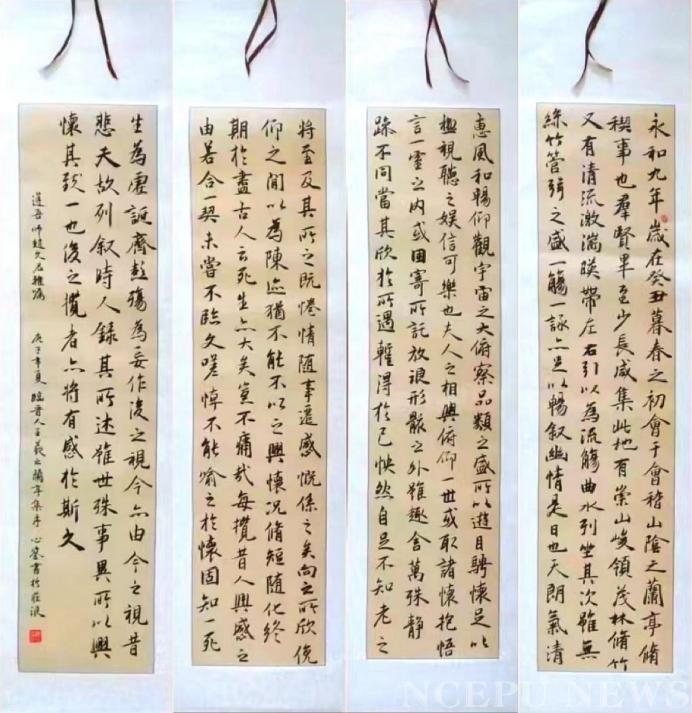 永和九年歲在癸丑暮春之初會于會稽山陰之蘭亭脩
稧事也羣賢畢至少長咸集此地有崇山峻領茂林脩竹
又有清流激湍暎帶左右引以為流觴曲水列坐其次雖無
絲竹管弦之盛一觴一詠亦足以暢叙幽情是日也天朗氣清
惠風和暢仰觀宇宙之大俯察品類之盛所以遊目騁懷足以
極視聽之娛信可樂也夫人之相與俯仰一世或取諸懷抱悟
言一室之內或因寄所託放浪形骸之外雖趣舍萬殊靜
躁不同當其欣於所遇暫得於己怏然自足不知老之
將至及其所之既惓情隨事遷感慨係之矣向之所欣俛
仰之閒以為陳迹猶不能不以之興懷況脩短隨化終
期於盡古人云死生亦大矣豈不痛哉每攬昔人興感之
由若合一契未嘗不臨文嗟悼不能喻之於懷固知一死
生為虛誕齊彭殤為妄作後之視今亦由今之視昔
悲夫故列叙時人錄其所述雖世殊事異所以興
懷其致一也後之攬者亦將有感於斯文
庚子年夏 臨晉人王羲之蘭亭集序
NCEPU NEWS